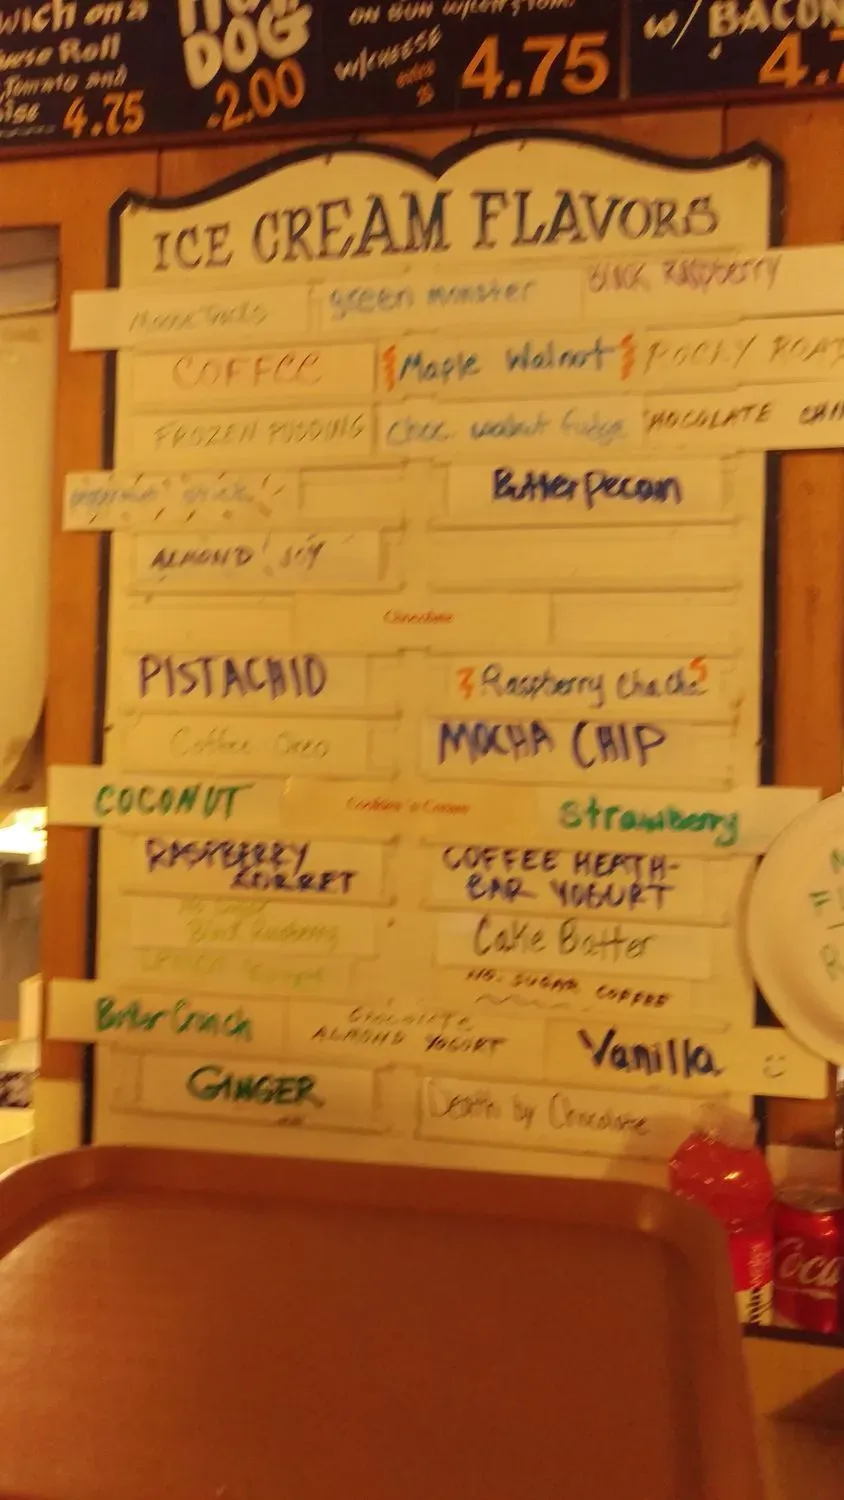 wich on a
Roll
Tomato and
4.75
HOT
DOG
2.00
ON BUN
W/CHEESE
4.75
w/ BACON
4.7
ICE CREAM FLAVORS
Moose Tracks
green monster
Black Raspberry
COFFEE
Maple Walnut
ROCKY ROA
FROZEN PUDDING
Choc. walnut fudge
HOCOLATE CHI
peppermint stick
Butter pecan
ALMOND JOY
Chocolate
PISTACHIO
Raspberry Cha Cha
Coffee Oreo
MOCHA CHIP
COCONUT
Cookies 'n Cream
Strawberry
RASPBERRY
SORBET
COFFEE HEATH-
BAR YOGURT
No Sugar
Black Raspberry
Cake Batter
NO-SUGAR COFFEE
Butter Crunch
CHOCOLATE
ALMOND YOGURT
Vanilla
GINGER
Death by Chocolate
Coca